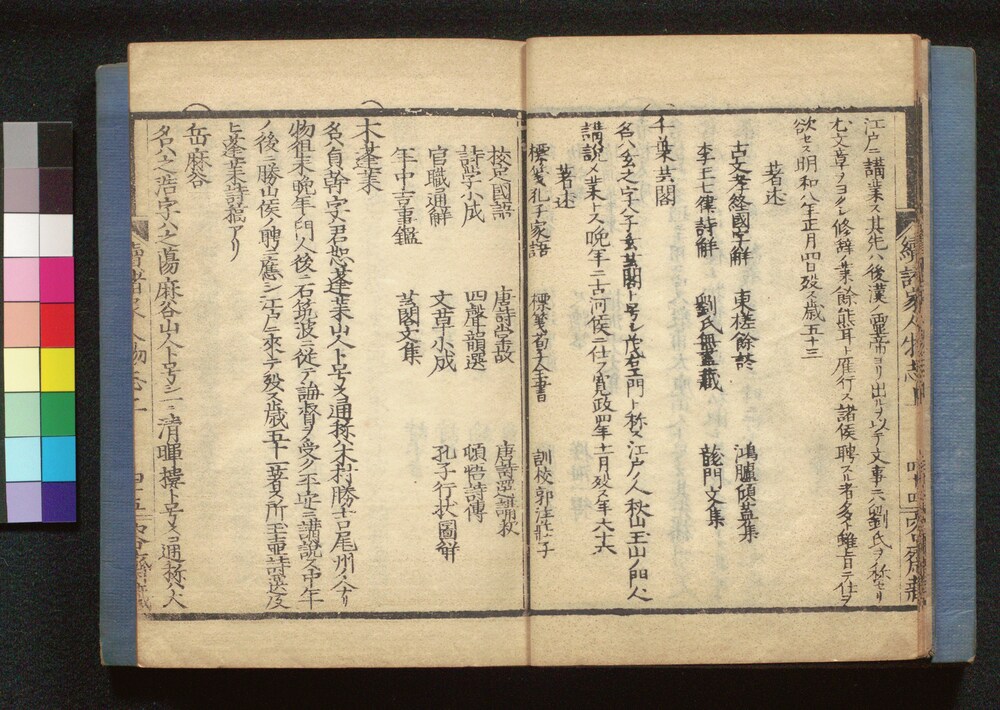 江戸ニ講業ス其先ハ後漢ノ霊帝ヨリ出ルヲ以テ文事ニハ劉氏ヲ称セリ
尤文章ヲヨクシ修辞ノ業餘熊耳ト雁行ス諸侯聘スル者多ト雖ヒ日テ仕ヲ
欲セス明和八年正月四日殁ス歳五十三
著述
古文孝経國字解 東槎餘談 鴻臚傾蓋集
李王七律詩解 劉氏無盡蔵 龍門文集
千葉芸閣
名ハ玄之字ハ子玄芸閣ト号シ茂右エ門ト称ス江戸ノ人秋山玉山ノ門人
講説ヲ業トス晩年ニ古河侯ニ仕フ寛政四年十一月殁ス年六十六
著述
標箋孔子家語 標箋荀大全書 訓校郭注荘子
校定國語 唐詩掌故 唐詩選講釈
詩学小成 四聲韻選 頓悟詩傳
官職通解 文章小成 孔子行状圖解
年中吉事鑑 芸閣文集
木蓬莱
名ハ貞幹字ハ君恕蓬莱山人ト号ス通称ハ木村勝吉尾州ノ人ナリ
物徂徠晩年ノ門人後ニ石筑波ニ従テ誨督ヲ受ク平安ニ講説ス中年
ノ後ニ勝山侯ノ聘ニ應シ江戸ニ來テ殁ス歳五十二著ス所玉壷詩選及
ヒ蓬莱詩稿アリ
岳麻谷
名ハ之浩字ハ之蕩麻谷山人ト号シ一ニ清暉樓ト号ス通称ハ大